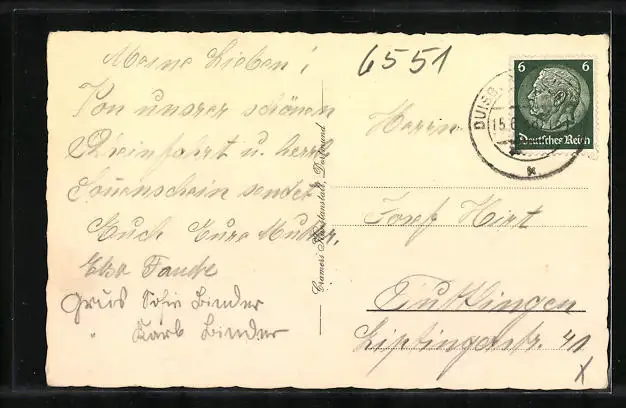 Meine Lieben!
Von unsrer schönen
Rheinfahrt u. herrl.
Sonnenschein sendet
Euch Eure Mutter.
Elsa
Grüs Sofie Binder
" Karl Binder
6551
Cramers Kunstanstalt, Dortmund
6 6
Deutsches Reich
DUISB
15.6
Herrn
Josef Hirt
Tuttlingen
Liptingerstr. 41
x